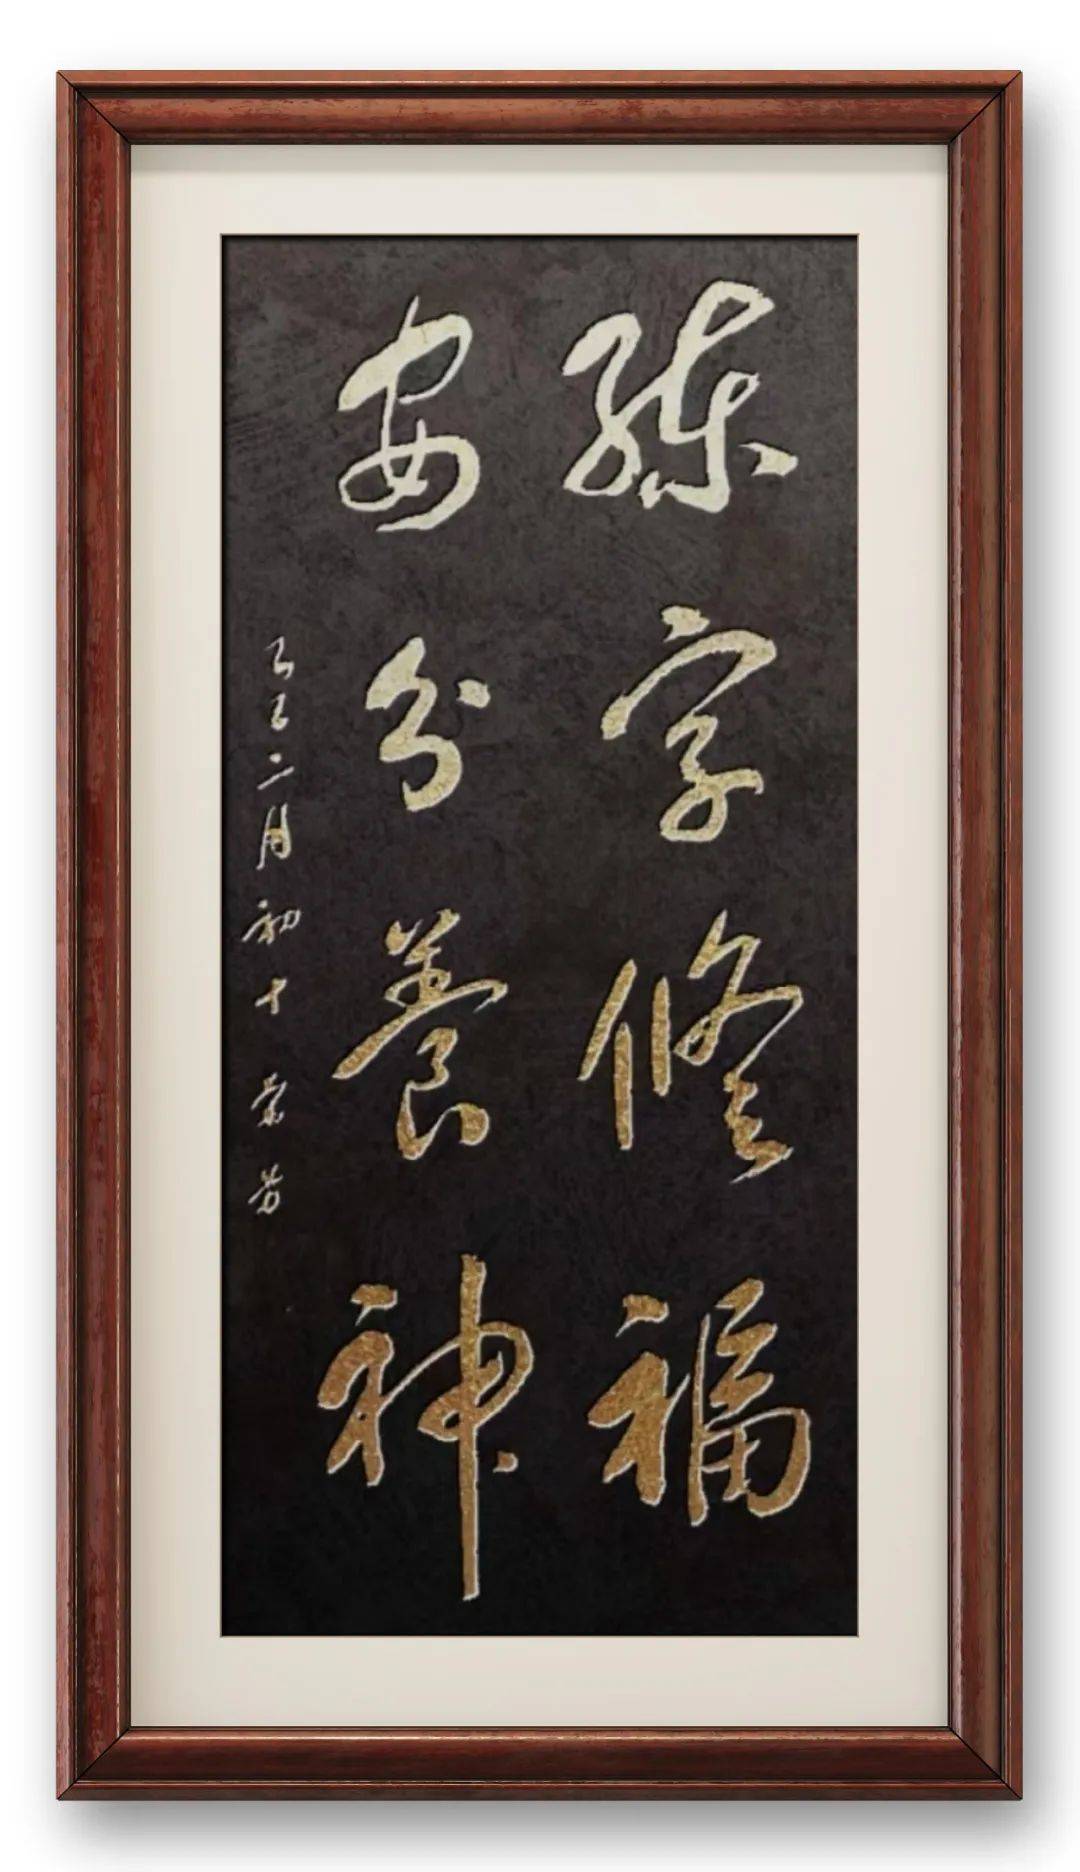 练字修福
安分养神
乙巳二月初十 荣芳